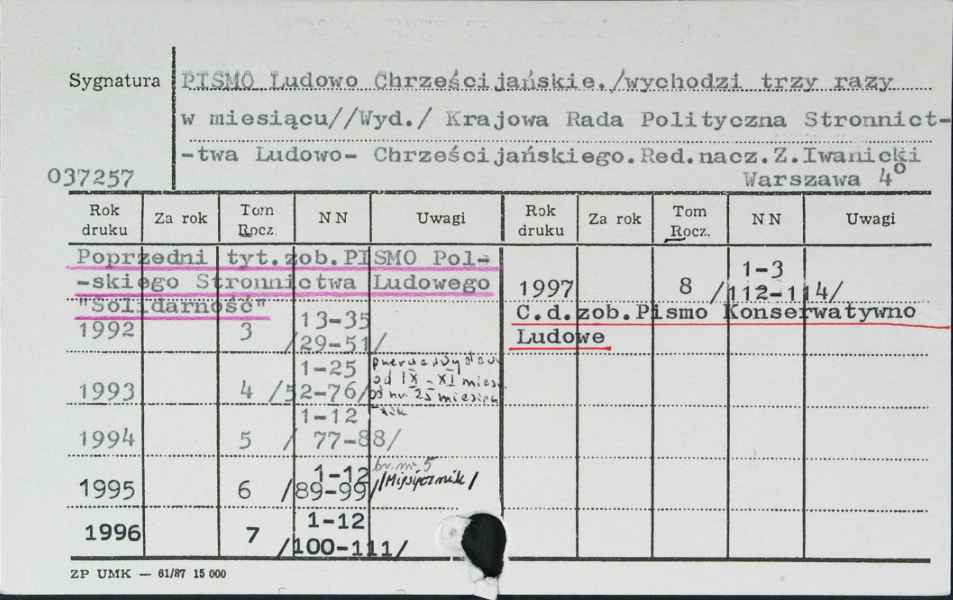 Sygnatura
PISMO Ludowo Chrześcijańskie./wychodzi trzy razy
w miesiącu//Wyd./ Krajowa Rada Polityczna Stronnict-
-twa Ludowo- Chrześcijańskiego.Red.nacz.Z.Iwanicki
037257
Warszawa 4o
Rok druku Za rok Tom Rocz. NN Uwagi Rok druku Za rok Tom Rocz. NN Uwagi
Poprzedni tyt.zob.PISMO Pol-
-skiego Stronnictwa Ludowego
"Solidarność"
1992 3 13-35
/29-51/
1993 4 1-25
/52-76/
od IX - XI mies.
od nr. 25
1994 5 1-12
/ 77-88/
1995 6 1-12
/89-99/
br. nr. 5
/Miesięcznik/
1996 7 1-12
/100-111/
1997 8 1-3
/112-114/
C.d.zob.Pismo Konserwatywno
Ludowe
ZP UMK — 61/87 15 000